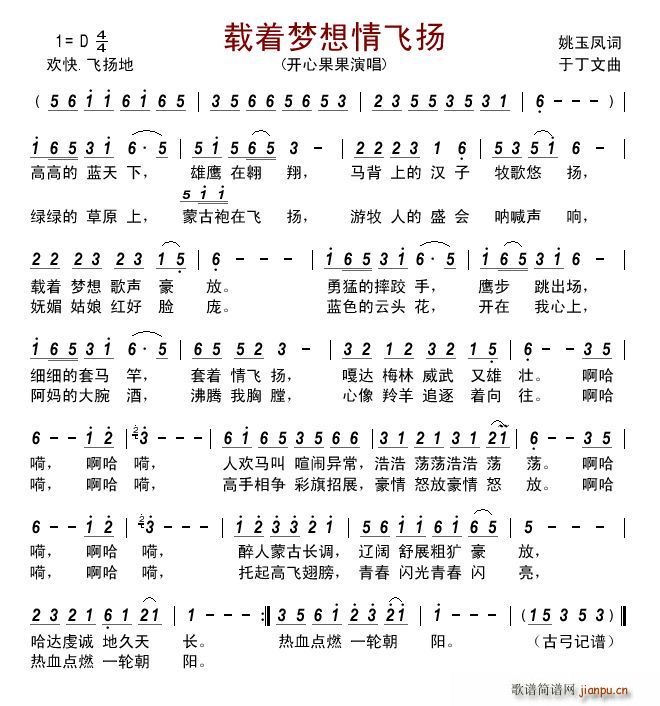 载着梦想情飞扬
1= D 4/4
姚玉凤词
欢快.飞扬地
(开心果果演唱)
于丁文曲
( 5 6 1 1 6 1 6 5 | 3 5 6 6 5 6 5 3 | 2 3 5 5 2 3 5 3 1 | 6 - - - ) |
1 6 5 3 1 6 · 5 | 5 1 5 6 5 3 - | 2 2 2 2 3 6 | 5 3 5 1 6 - |
高高的 蓝天 下, 雄鹰 在翱 翔, 马背 上的 汉 子 牧歌悠 扬,
5 1 1
绿绿的 草原 上, 蒙古袍在飞 扬, 游牧 人的 盛 会 呐喊声 响,
2 2 2 3 2 3 1 5 | 6 - - - | 1 6 5 3 1 6 · 5 | 1 6 5 3 5 3 - |
载着 梦想 歌声 豪 放。 勇猛的摔跤 手, 鹰步 跳出场,
妩媚 姑娘 红好 脸 庞。 蓝色的云头 花, 开在 我心上,
1 6 5 3 1 6 · 5 | 5 1 6 5 2 3 - | 3 2 2 1 3 2 2 1 5 | 6 - - 3 5 |
细细的套马 竿, 套着 情飞 扬, 嘎达 梅林 威武 又雄 壮。 啊哈
阿妈的大腕 酒, 沸腾 我胸 膛, 心像 羚羊 追逐 着向 往。 啊哈
6 - 1 2 | 3 - - - | 6 1 6 1 3 6 5 3 | 2 3 1 2 1 3 1 2 1 | 6 - - 3 5 |
嗬, 啊哈 嗬, 人欢马叫 喧闹异常, 浩浩 荡荡浩浩 荡 荡。 啊哈
嗬, 啊哈 嗬, 高手相争 彩旗招展, 豪情 怒放豪情 怒 放。 啊哈
6 - 1 2 | 3 - - - | 1 2 3 2 1 6 5 3 | 2 3 1 2 1 6 6 5 | 6 - - - |
嗬, 啊哈 嗬, 醉人蒙古长调, 辽阔 舒展粗犷 豪 放,
嗬, 啊哈 嗬, 托起高飞翅膀, 青春 闪光青春 闪 亮,
3 2 3 5 6 1 6 2 1 | 1 - - - :‖ 3 5 6 1 2 3 2 2 1 | 1 - - - | ( 1 5 3 5 3 ) ‖
哈达虔诚 地久天 长。 热血点燃 一轮朝 阳。 (古弓记谱)
热血点燃 一轮朝 阳。
歌谱简谱网 jianpu.cn